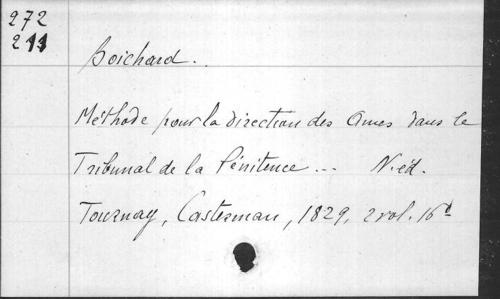 272
211
Boichard.
Méthode pour la direction des Ames dans le
Tribunal de la Pénitence... N. éd.
Tournay, Casterman, 1829, 2 vol. 16º